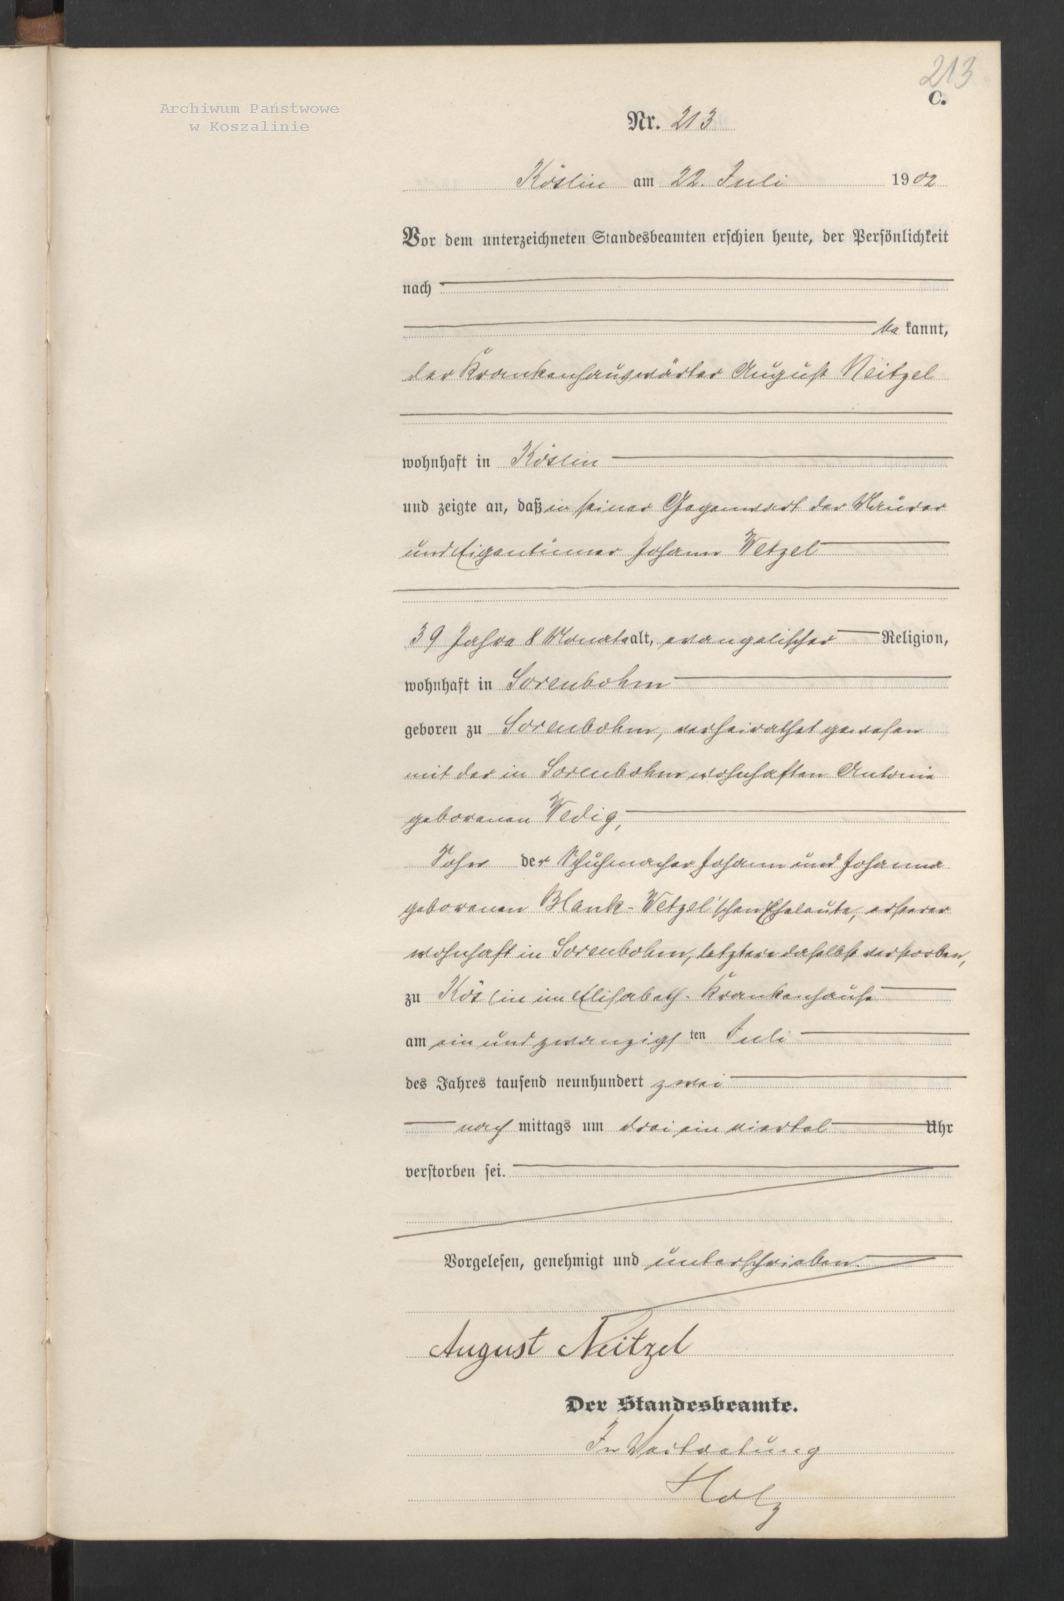 213
C.
Archiwum Państwowe
w Koszalinie
Nr. 213
Köslin am 22. Juli 1902
Vor dem unterzeichneten Standesbeamten erschien heute, der Persönlichkeit
nach
be kannt,
der Krankenhauswärter August Neitzel
wohnhaft in Köslin
und zeigte an, daß in seiner Gegenwart der Maurer
und Eigentümer Johann Wetzel
39 Jahre 8 Monate alt, evangelischer Religion,
wohnhaft in Sorenbohm
geboren zu Sorenbohm, verheirathet gewesen
mit der in Sorenbohm wohnhaften Antonie
geborenen Wedig,
Sohn der Schuhmacher Johann und Johanna
geborenen Blank-Wetzel'schen Eheleute, ersterer
wohnhaft in Sorenbohm, letztere daselbst verstorben,
zu Köslin im Elisabeth-Krankenhause
am ein und zwanzigs ten Juli
des Jahres tausend neunhundert zwei
nach mittags um drei ein viertel Uhr
verstorben sei.
Vorgelesen, genehmigt und unterschrieben.
August Neitzel
Der Standesbeamte.
In Vertretung
Holz